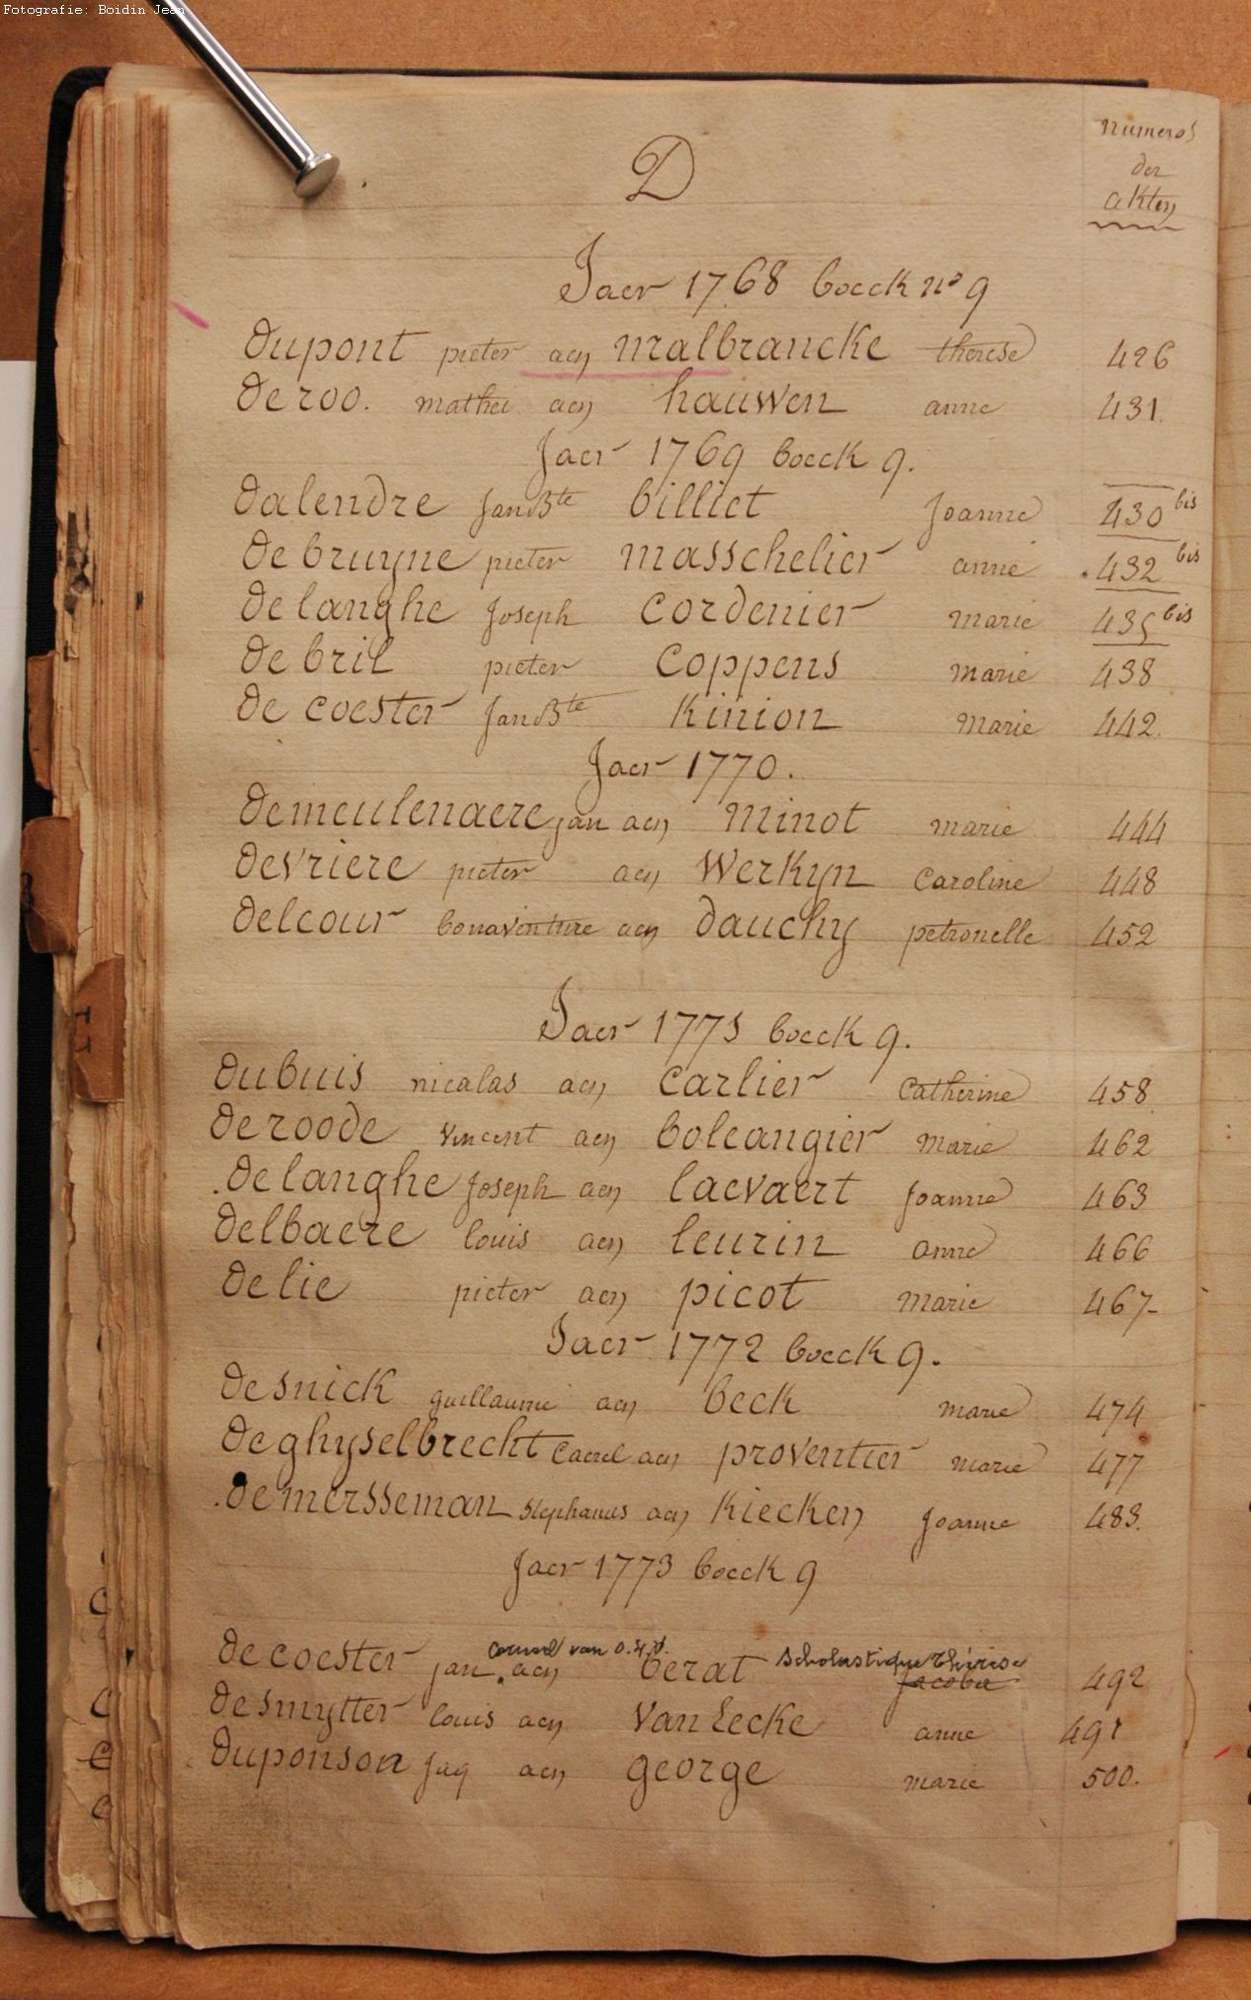 Fotografie: Boidin Jean
numeros
der
akten
D
Jaer 1768 boeck nº 9
Dupont pieter aen malbrancke therese 426
De roo. mathei aen hauwen anne 431.
Jaer 1769 boeck 9.
Dalendre JanBte billiet Joanne 430 bis
De bruyne pieter masschelier anne 432 bis
De langhe Joseph Cordenier marie 435 bis
De bril pieter Coppens marie 438
De coester JanBte Kinion marie 442.
Jaer 1770.
Demeulenaere jan aen Minot marie 444
Devriere pieter aen Werkyn Caroline 448
Delcour bonaventure aen Dauchy petronelle 452
Jaer 1771 boeck 9.
Dubuis nicalas aen Carlier Catherine 458
De roode Vincent aen boleangier marie 462
De langhe Joseph aen laevaert Joanne 463
Delbaere louis aen leurin anne 466
De lie pieter aen picot marie 467
Jaer 1772 boeck 9.
Desnick guillaume aen beck marie 474
Deghyselbrecht Caerel aen proventier marie 477
Demersseman Stephanus aen Kiecken Joanne 483.
Jaer 1773 boeck 9
van O.L.V. Scholastique Thérèse
De coester jan aen berat Jacoba 492
Desmytter louis aen Van Eecke anne 491
Duponson Jaq aen george marie 500.